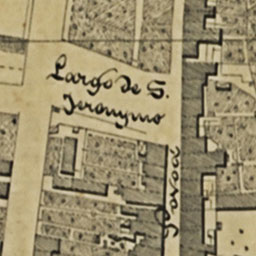 Largo de S.
Jeronymo
Povoa